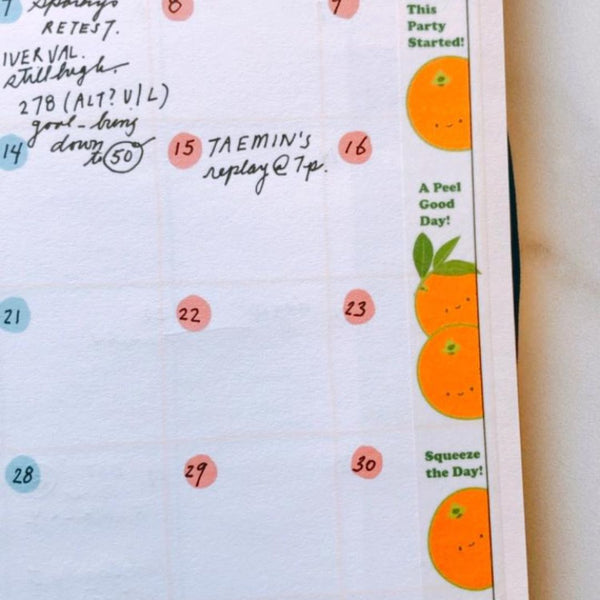 7
RETEST.
IVER VAL.
still high.
278 (ALT? U/L)
goal - bring
down
to 50
8
9
This
Party
Started!
14
15 TAEMIN'S
replay @ 7p.
16
A Peel
Good
Day!
21
22
23
28
29
30
Squeeze
the Day!